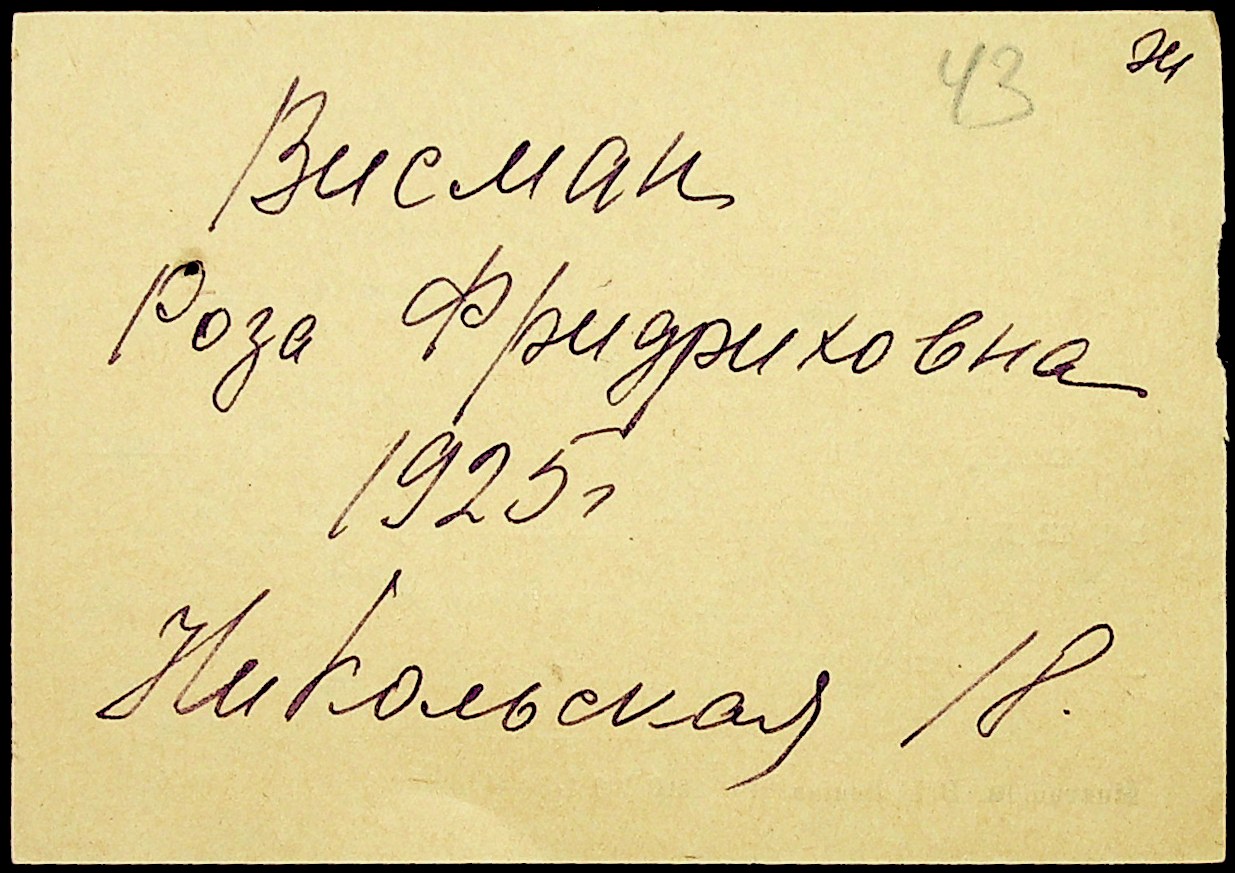 43
Висман
Роза Фридриховна
1925 г
Никольская 18.